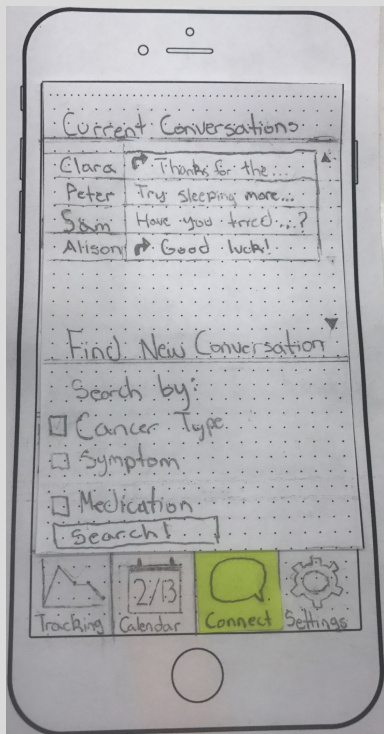 Current Conversations
Clara Thanks for the...
Peter Try sleeping more...
Sam Have you tried...?
Alison Good luck!
Find New Conversation
Search by:
Cancer Type
Symptom
Medication
Search!
2/13
Tracking Calendar Connect Settings